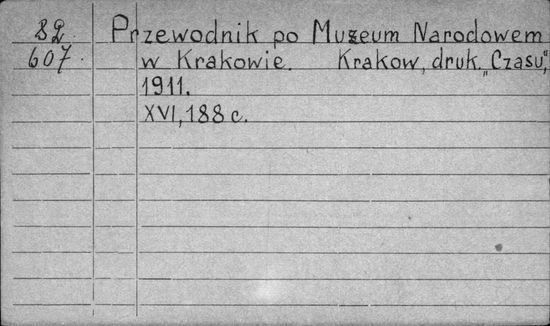 82 Przewodnik po Muzeum Narodowem
607. w Krakowie. Krakow, druk. „Czasu“,
1911.
XVI, 188 c.